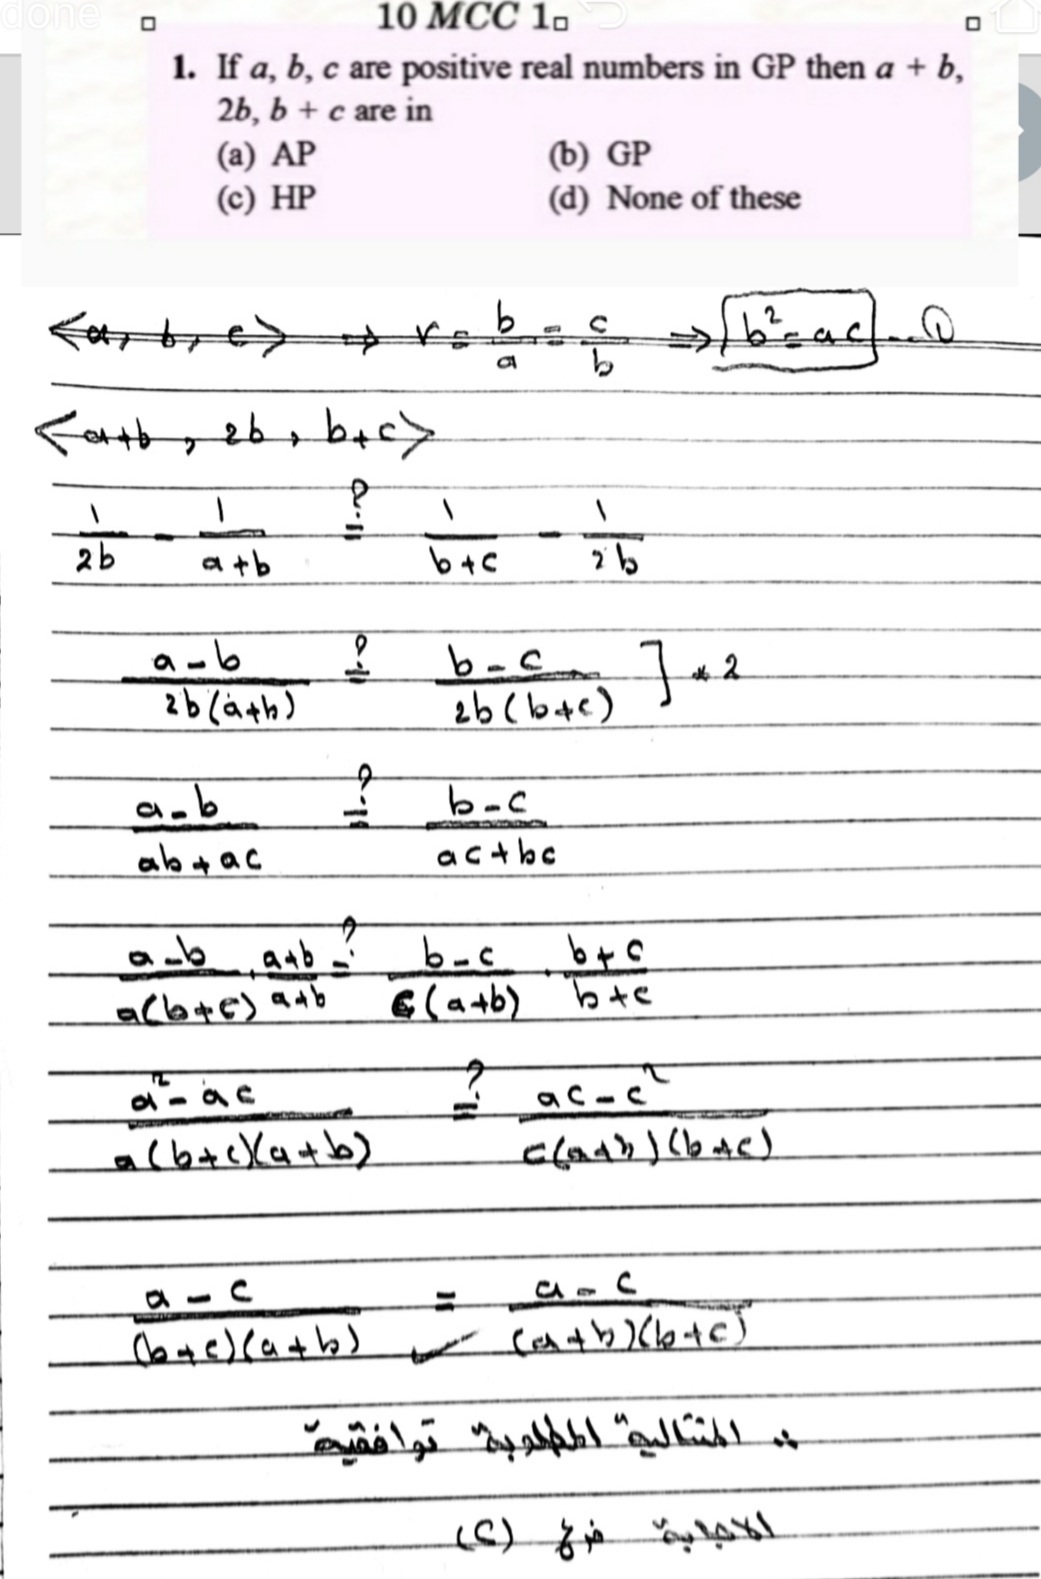 done
10 MCC 1
1. If a, b, c are positive real numbers in GP then a + b,
2b, b + c are in
(a) AP (b) GP
(c) HP (d) None of these
<a, b, c> ⇒ r = b/a = c/b ⇒ b² = ac ... ①
<a+b, 2b, b+c>
1/2b - 1/(a+b) =? 1/(b+c) - 1/2b
(a-b)/(2b(a+b)) =? (b-c)/(2b(b+c)) ] * 2
(a-b)/(ab+ac) =? (b-c)/(ac+bc)
(a-b)/(a(b+c)) . (a+b)/(a+b) =? (b-c)/(c(a+b)) . (b+c)/(b+c)
(a²-ac)/(a(b+c)(a+b)) =? (ac-c²)/(c(a+b)(b+c))
(a-c)/((b+c)(a+b)) = (a-c)/((a+b)(b+c)) ✓
∴ المتتالية المطلوبة توافقية
الاجابة فرع (C)